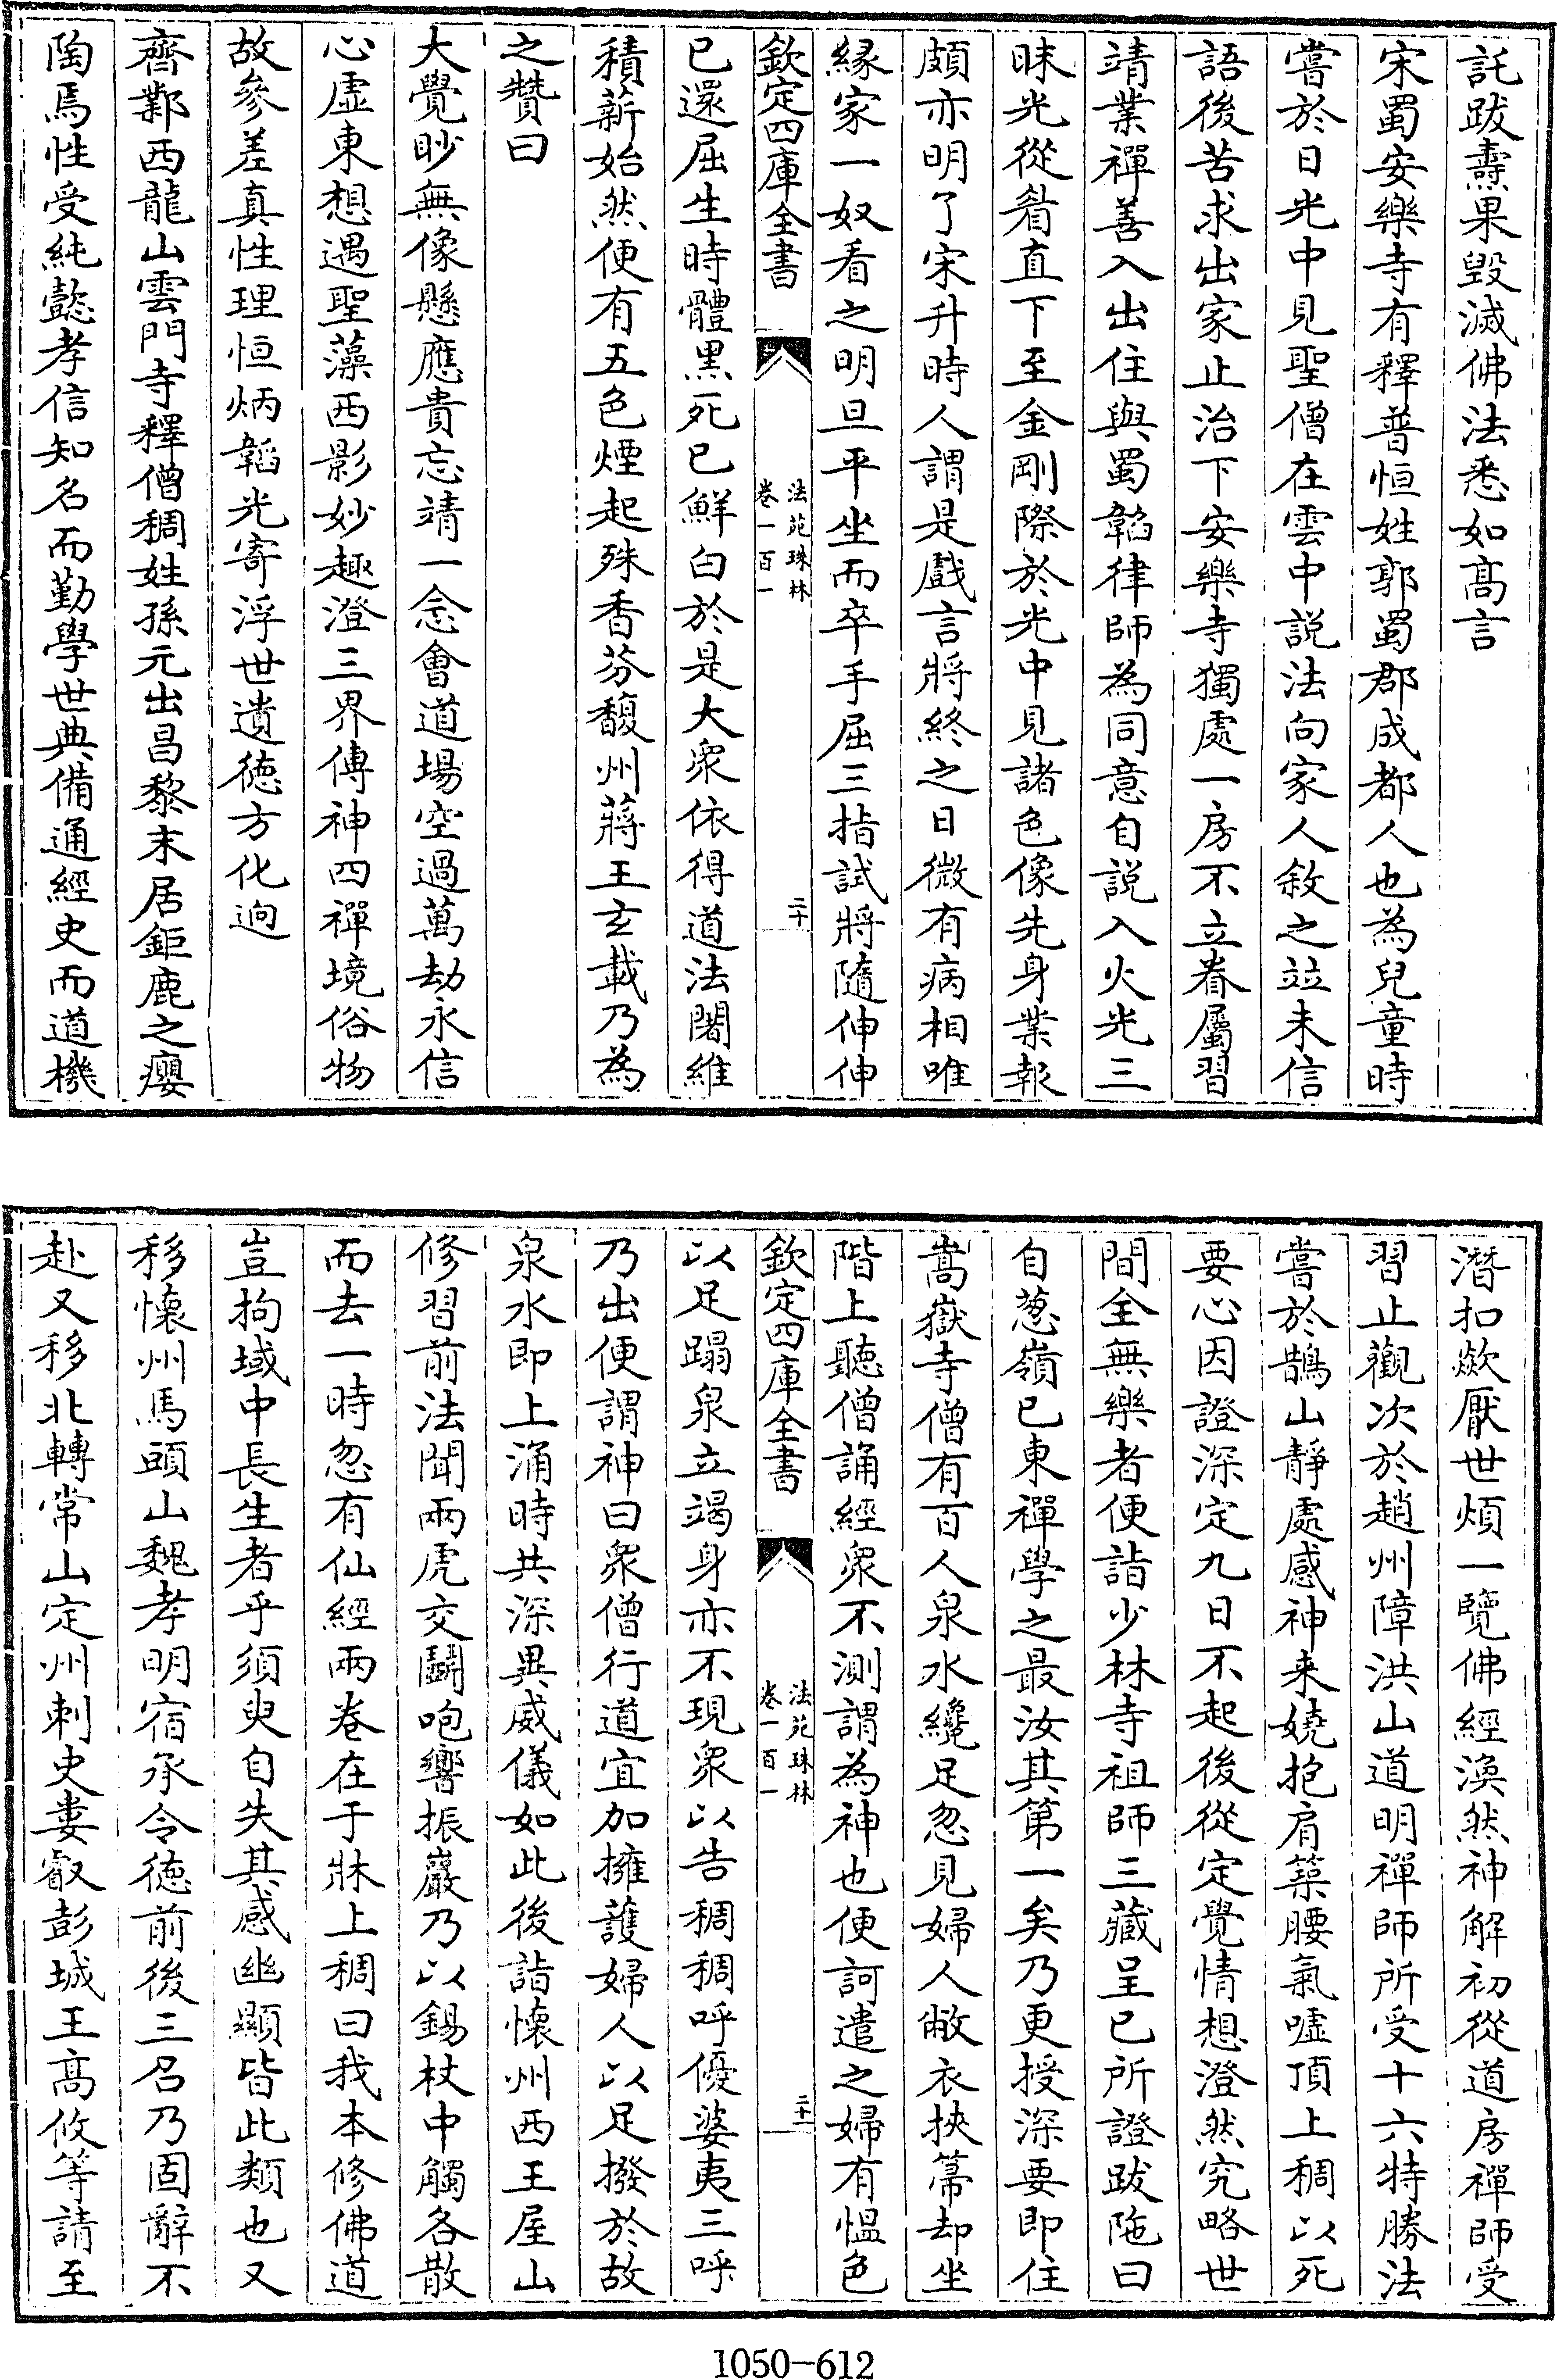 託跋燾果毀滅佛法悉如髙言
宋蜀安樂寺有釋普恒姓郭蜀郡成都人也為兒童時
嘗於日光中見聖僧在雲中説法向家人敘之竝未信
語後苦求出家止治下安樂寺獨處一房不立眷屬習
靖業禪善入出住與蜀韜律師為同意自説入火光三
昧光從眉直下至金剛際於光中見諸色像先身業報
頗亦明了宋升時人謂是戲言將終之日微有病相唯
緣家一奴看之明旦平坐而卒手屈三指試將隨伸伸
欽定四庫全書
法苑珠林
卷一百一
二十
已還屈生時體黒死已鮮白於是大衆依得道法闍維
積薪始然便有五色煙起殊香芬馥州蔣王玄載乃為
之贊曰
大覺眇無像懸應貴忘靖一念會道場空過萬劫永信
心虛東想遇聖藻西影妙趣澄三界傳神四禪境俗物
故參差真性理恒炳韜光寄浮世遺徳方化逈
齊鄴西龍山雲門寺釋僧稠姓孫元出昌黎末居鉅鹿之癭
陶焉性受純懿孝信知名而勤學世典備通經史而道機
潛扣歘厭世煩一覽佛經渙然神解初從道房禪師受
習止觀次於趙州障洪山道明禪師所受十六特勝法
嘗於鵲山靜處感神来嬈抱肩築腰氣噓頂上稠以死
要心因證深定九日不起後從定覺情想澄然究略世
間全無樂者便詣少林寺祖師三藏呈已所證跋陁曰
自葱嶺已東禪學之最汝其第一矣乃更授深要即住
嵩嶽寺僧有百人泉水纔足忽見婦人敝衣挾帚却坐
階上聽僧誦經衆不測謂為神也便訶遣之婦有愠色
欽定四庫全書
法苑珠林
卷一百一
二十一
以足蹋泉立竭身亦不現衆以告稠稠呼優婆夷三呼
乃出便謂神曰衆僧行道宜加擁䕶婦人以足撥於故
泉水即上涌時共深異威儀如此後詣懷州西王屋山
修習前法聞兩虎交鬭咆響振巖乃以錫杖中觸各散
而去一時忽有仙經兩卷在于牀上稠曰我本修佛道
豈拘域中長生者乎須臾自失其感幽顯皆此類也又
移懷州馬頭山魏孝明宿承令徳前後三召乃固辭不
赴又移北轉常山定州刺史婁叡彭城王髙攸等請至
1050-612